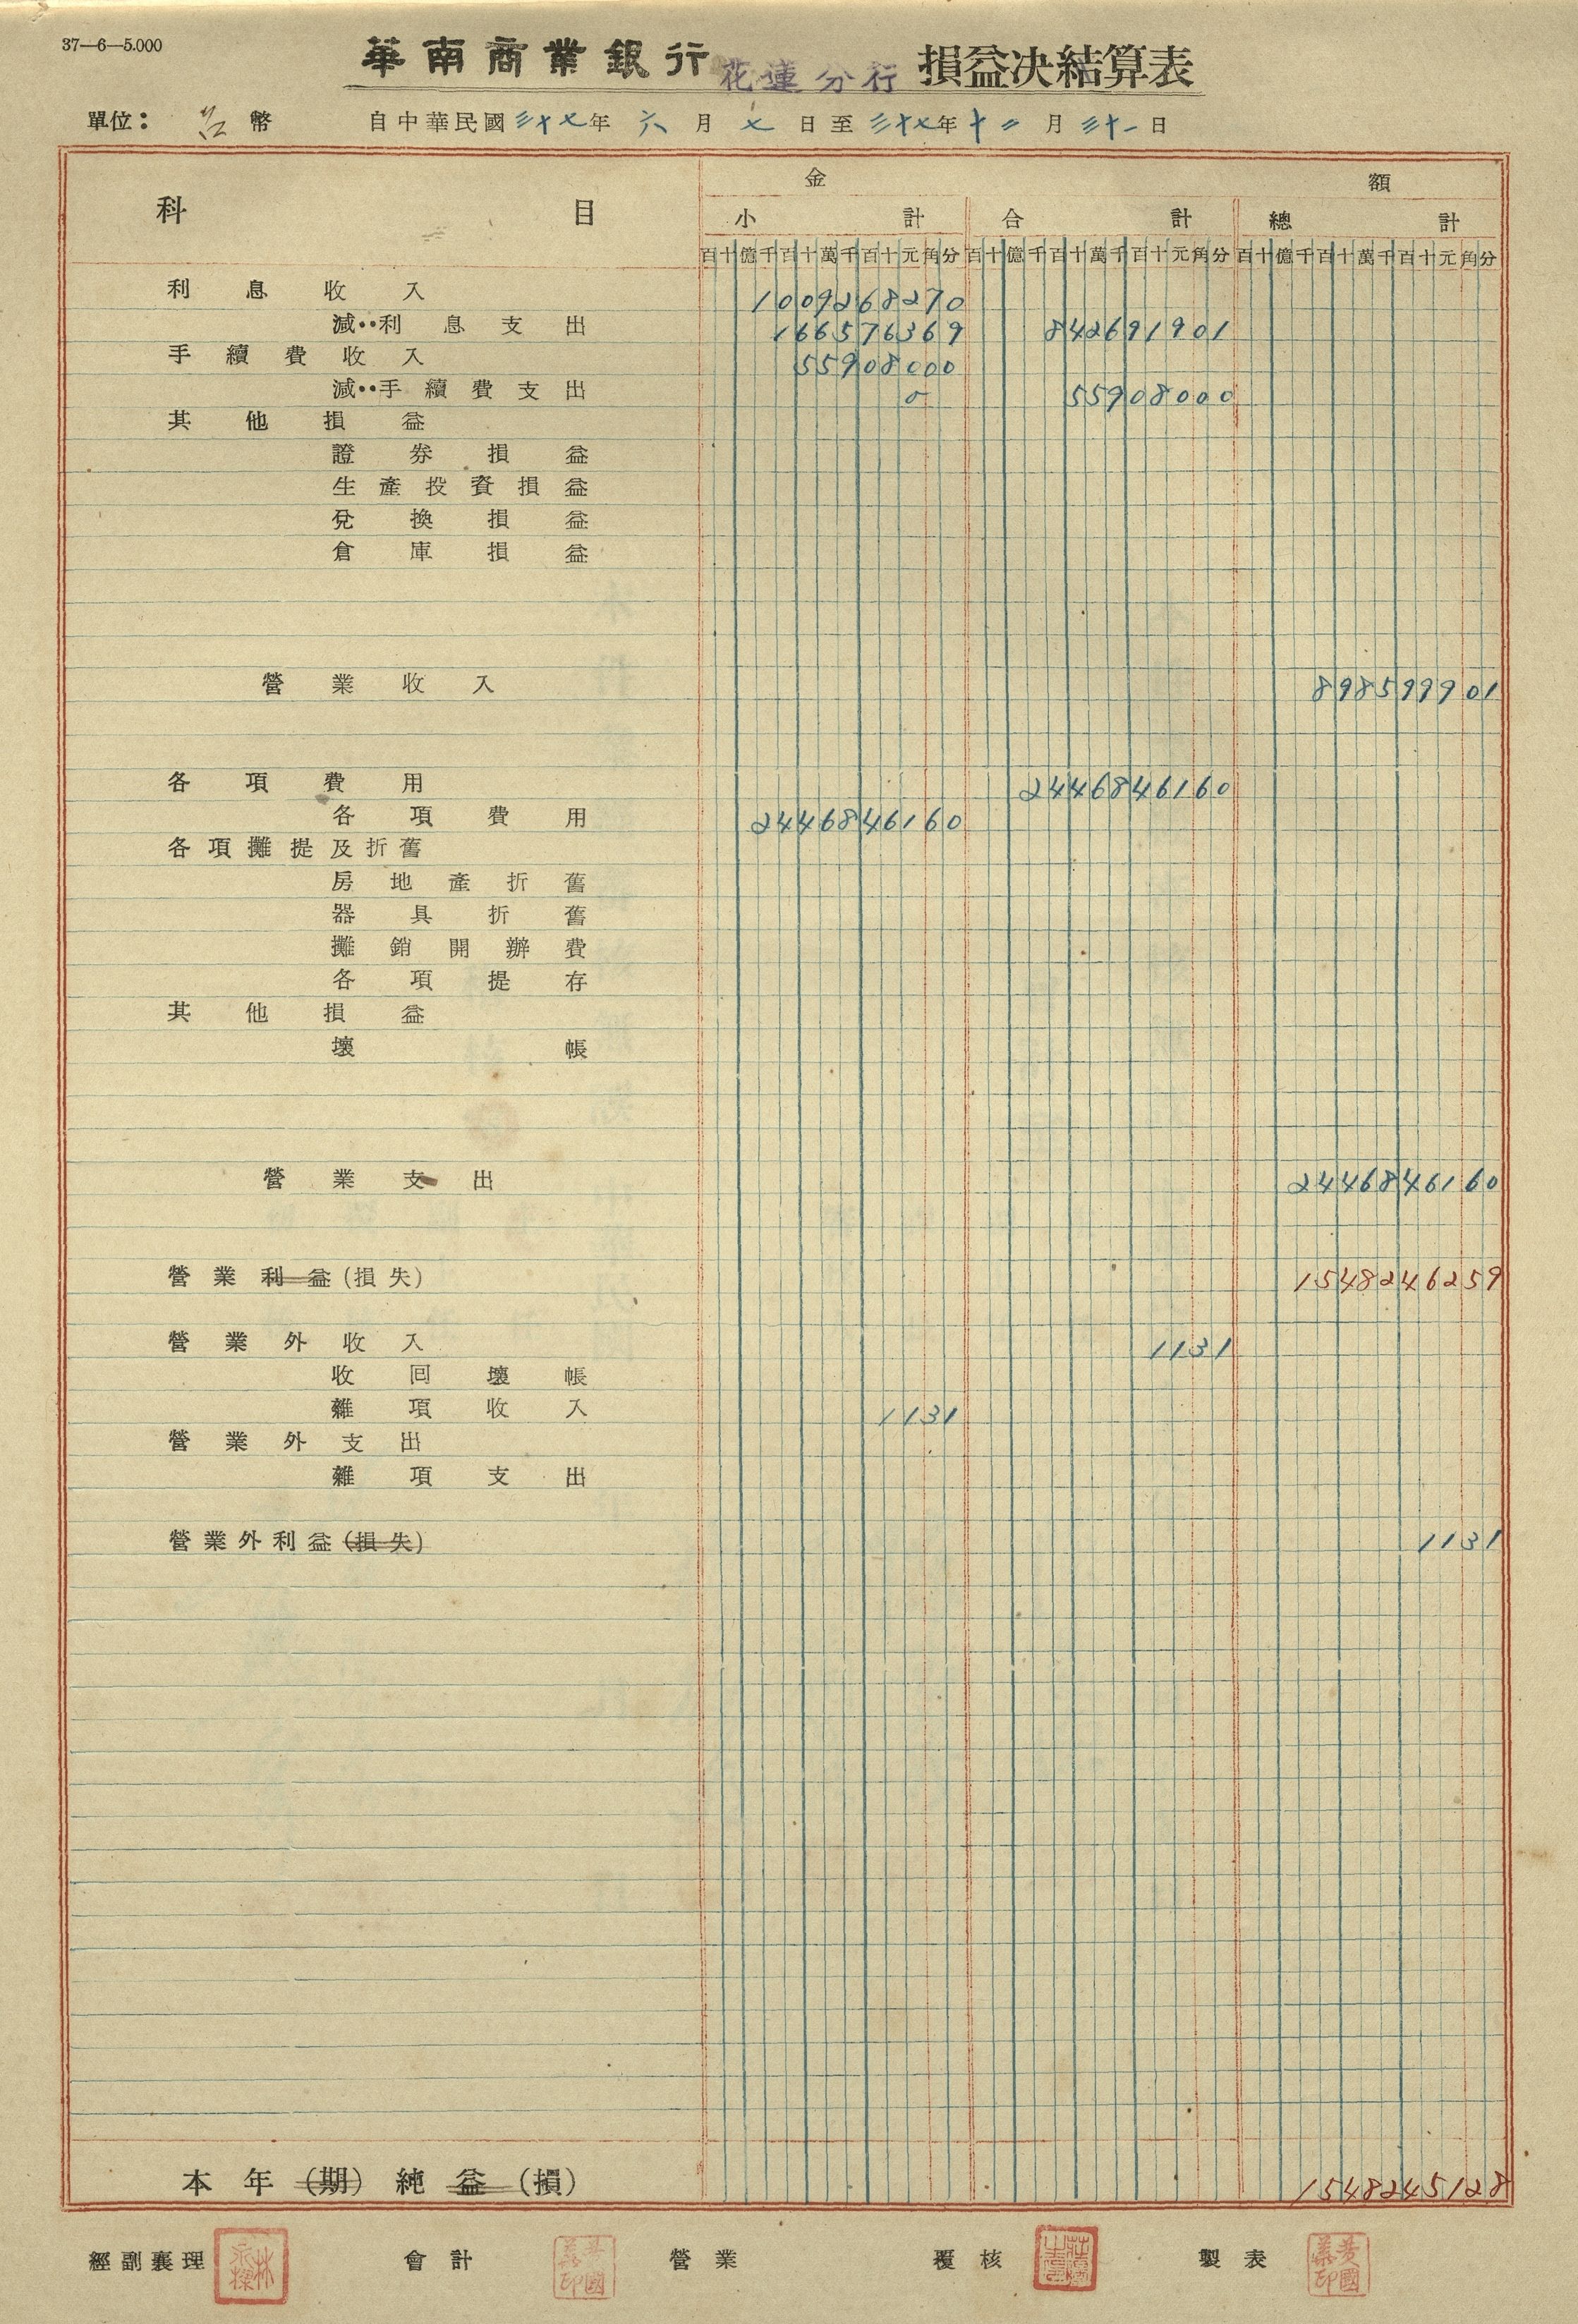 37—6—5.000
華南商業銀行 花蓮分行 損益決結算表
單位：台幣 自中華民國三十七年六月七日至三十七年十二月三十一日
金額
科目 小計 合計 總計
百十億千百十萬千百十元角分 百十億千百十萬千百十元角分 百十億千百十萬千百十元角分
利息收入 1009268270
減：利息支出 166576369 842691901
手續費收入 55908000
減：手續費支出 0 55908000
其他損益
證券損益
生產投資損益
兌換損益
倉庫損益
營業收入 898599901
各項費用 2446846160
各項費用 2446846160
各項攤提及折舊
房地產折舊
器具折舊
攤銷開辦費
各項提存
其他損益
壞帳
營業支出 2446846160
營業利益(損失) 1548246259
營業外收入 1131
收回壞帳
雜項收入 1131
營業外支出
雜項支出
營業外利益(損失) 1131
本年(期)純益(損) 1548245128
經副襄理 會計 營業 覆核 製表